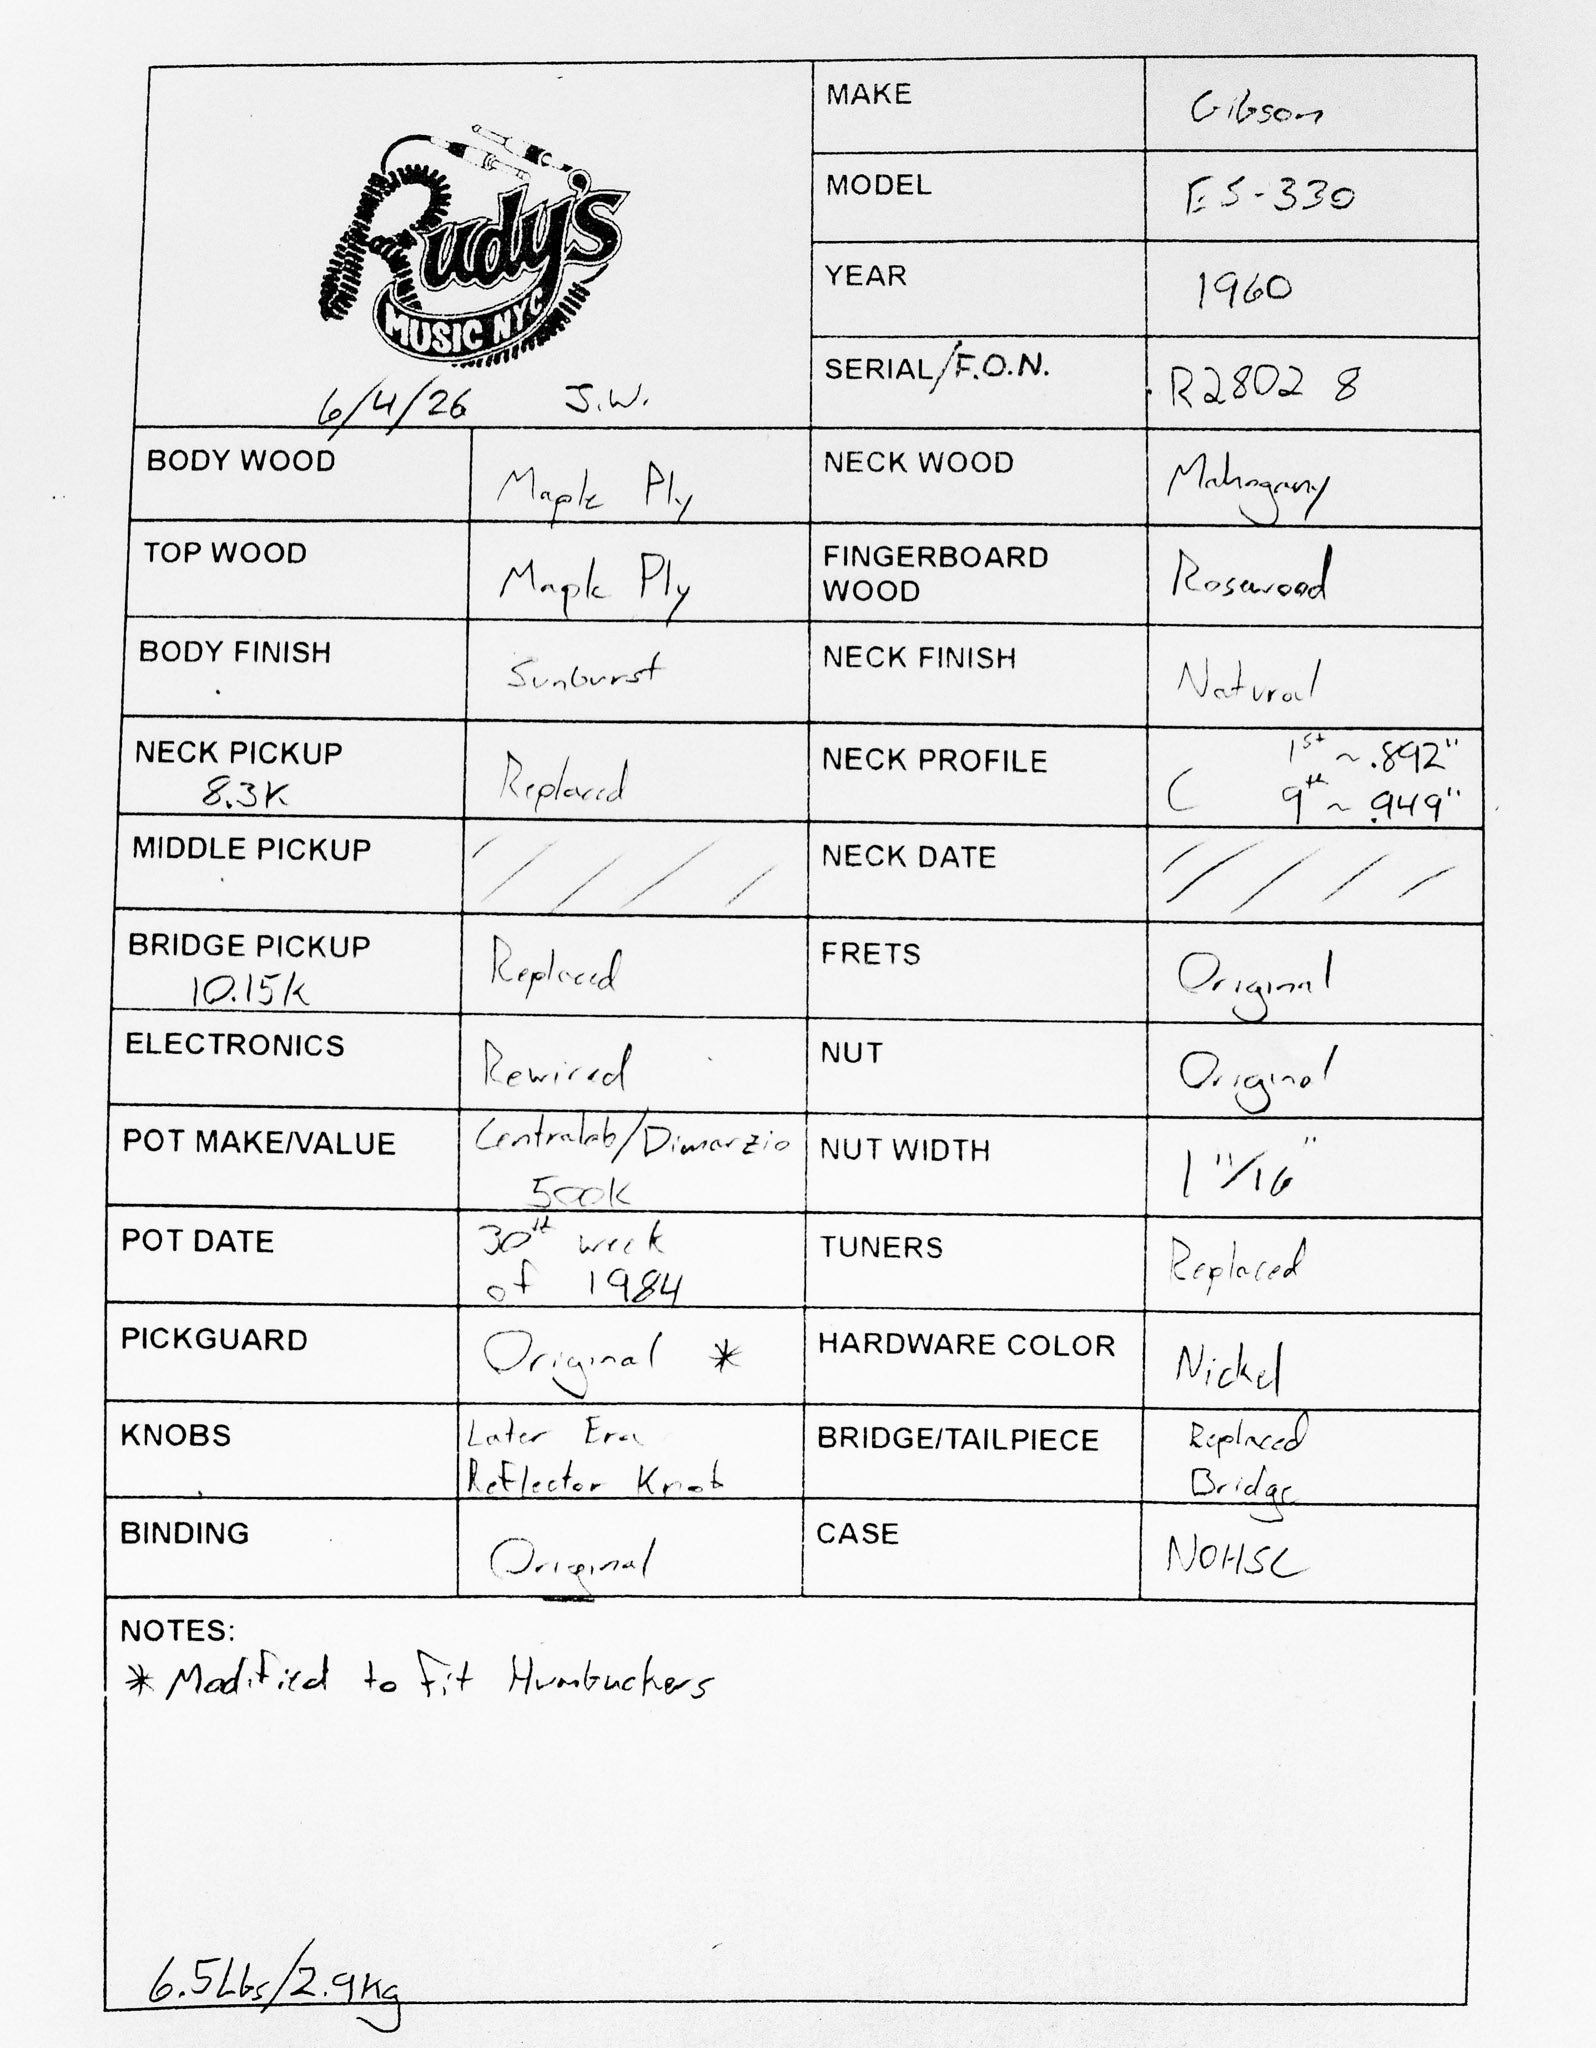 Rudy's
MUSIC NYC
6/4/26 J.W.
MAKE Gibson
MODEL ES-330
YEAR 1960
SERIAL/F.O.N. R2802 8
BODY WOOD Maple Ply
NECK WOOD Mahogany
TOP WOOD Maple Ply
FINGERBOARD
WOOD Rosewood
BODY FINISH Sunburst
NECK FINISH Natural
NECK PICKUP
8.3K Replaced
NECK PROFILE C 1st ~ .892"
9th ~ .949"
MIDDLE PICKUP
NECK DATE
BRIDGE PICKUP
10.15K Replaced
FRETS Original
ELECTRONICS Rewired
NUT Original
POT MAKE/VALUE Centralab/Dimarzio
500K
NUT WIDTH 1 11/16"
POT DATE 30th week
of 1984
TUNERS Replaced
PICKGUARD Original *
HARDWARE COLOR Nickel
KNOBS Later Era
Reflector Knob
BRIDGE/TAILPIECE Replaced
Bridge
BINDING Original
CASE NOHSC
NOTES:
* Modified to fit Humbuckers
6.5Lbs/2.9Kg